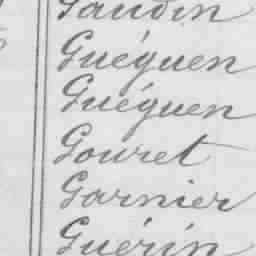 Gaudin
Guéguen
Guéguen
Gouret
Garnier
Guérin